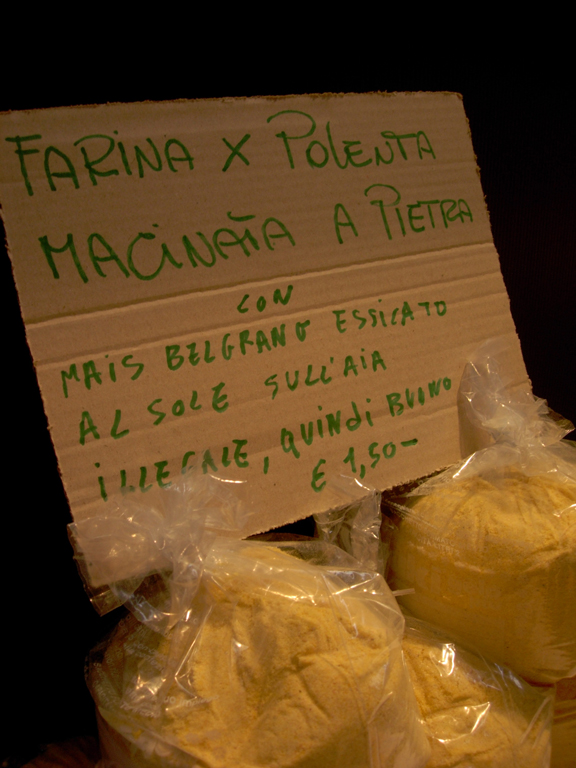 FARINA X POLENTA
MACINATA A PIETRA
CON
MAIS BELGRANO ESSICATO
AL SOLE SULL'AIA
ILLEGALE, QUINDI BUONO
€ 1,50-